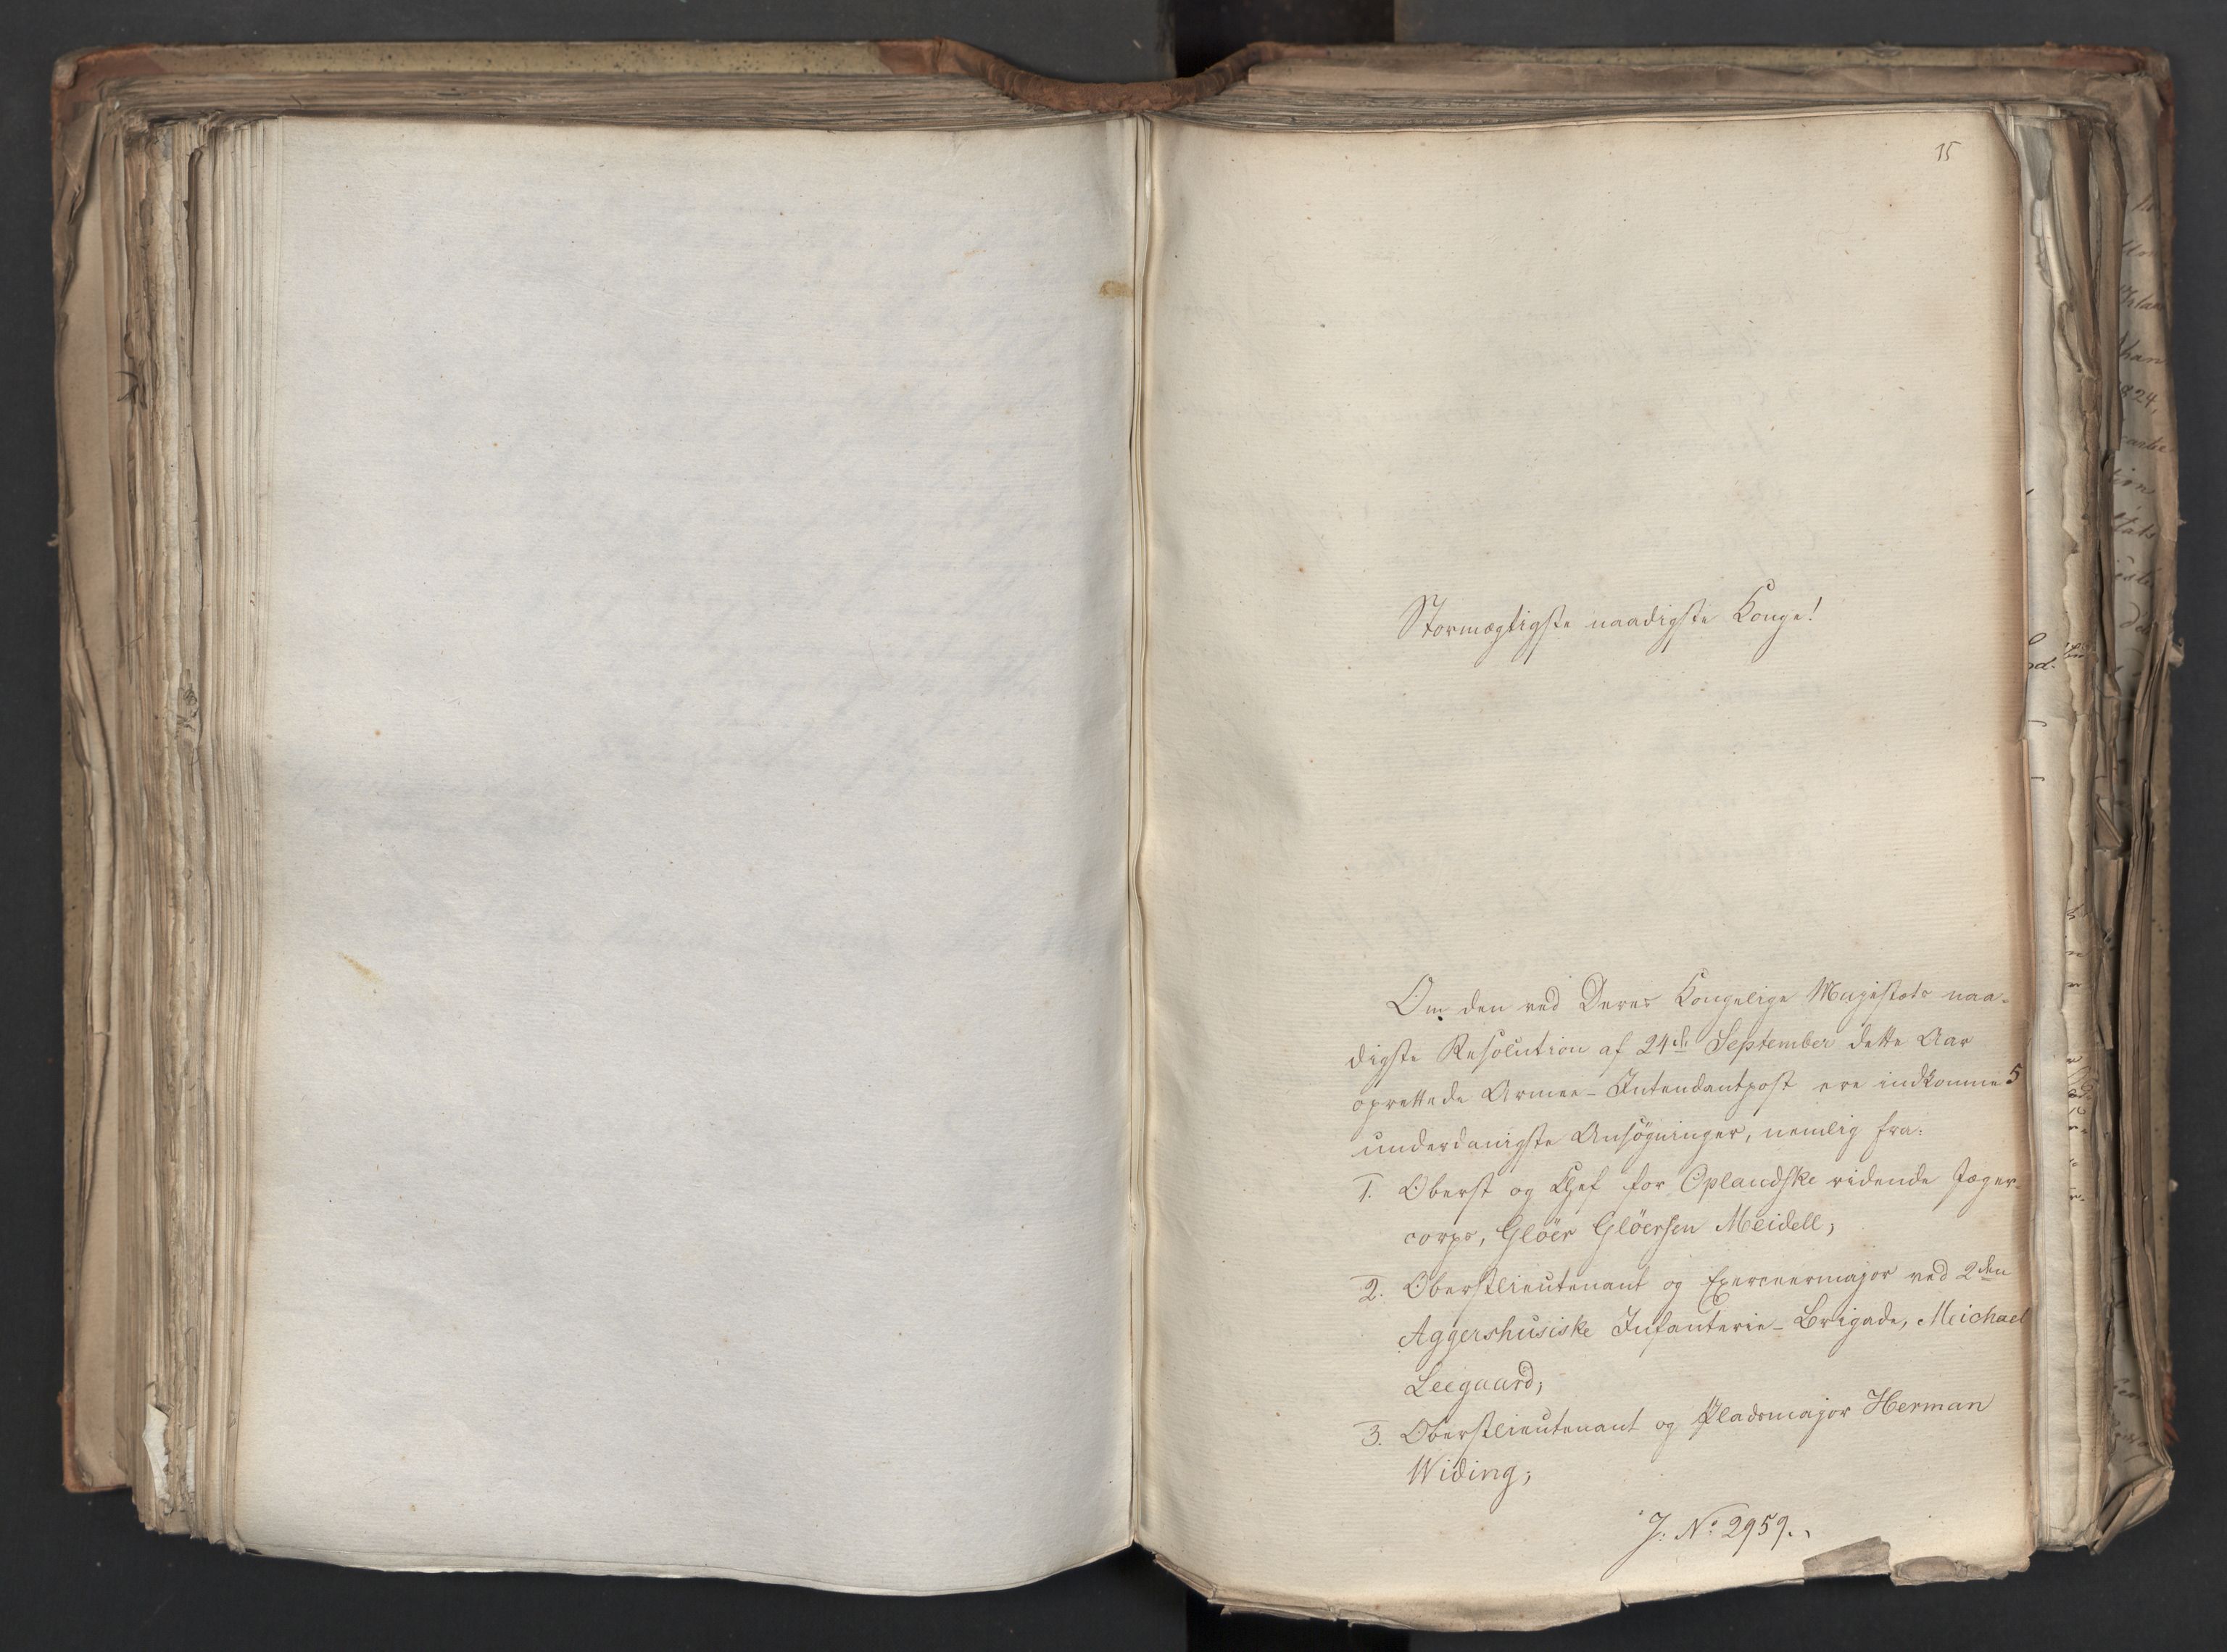 15
Stormægtigste naadigste Konge!
Om den ved Deres Kongelige Majestæts naa-
digste Resolution af 24de September dette Aar
oprettede Armee-Intendantpost ere indkomne 5
underdanigste Ansøgninger, nemlig fra:
1. Oberst og Chef for Oplandske ridende Jæger-
corps, Glöer Glöersen Meidell;
2. Oberstlieutenant og Exerceermajor ved 2den
Aggershusiske Infanterie-Brigade, Meichael
Leegaard;
3. Oberstlieutenant og Pladsmajor Herman
Widing;
J. No 2959.